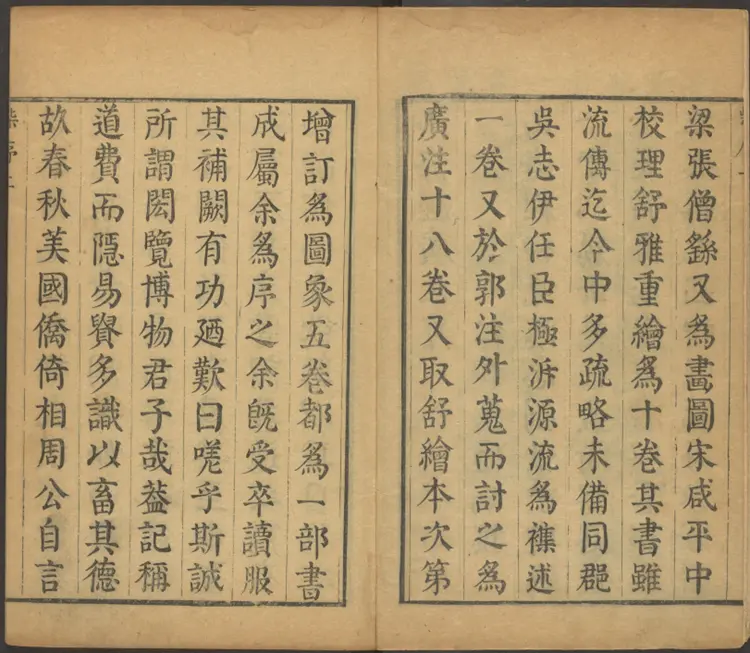 梁張僧繇又爲畫圖宋咸平中
校理舒雅重繪爲十卷其書雖
流傳迄今中多疏略未備同郡
吳志伊任臣極泝源流爲襍述
一卷又於郭注外蒐而討之爲
廣注十八卷又取舒繪本次第
增訂爲圖象五卷都爲一部書
成屬余爲序之余旣受卒讀服
其補闕有功廼歎曰嗟乎斯誠
所謂閎覽博物君子哉葢記稱
道費而隱易賢多識以畜其德
故春秋美國僑倚相周公自言